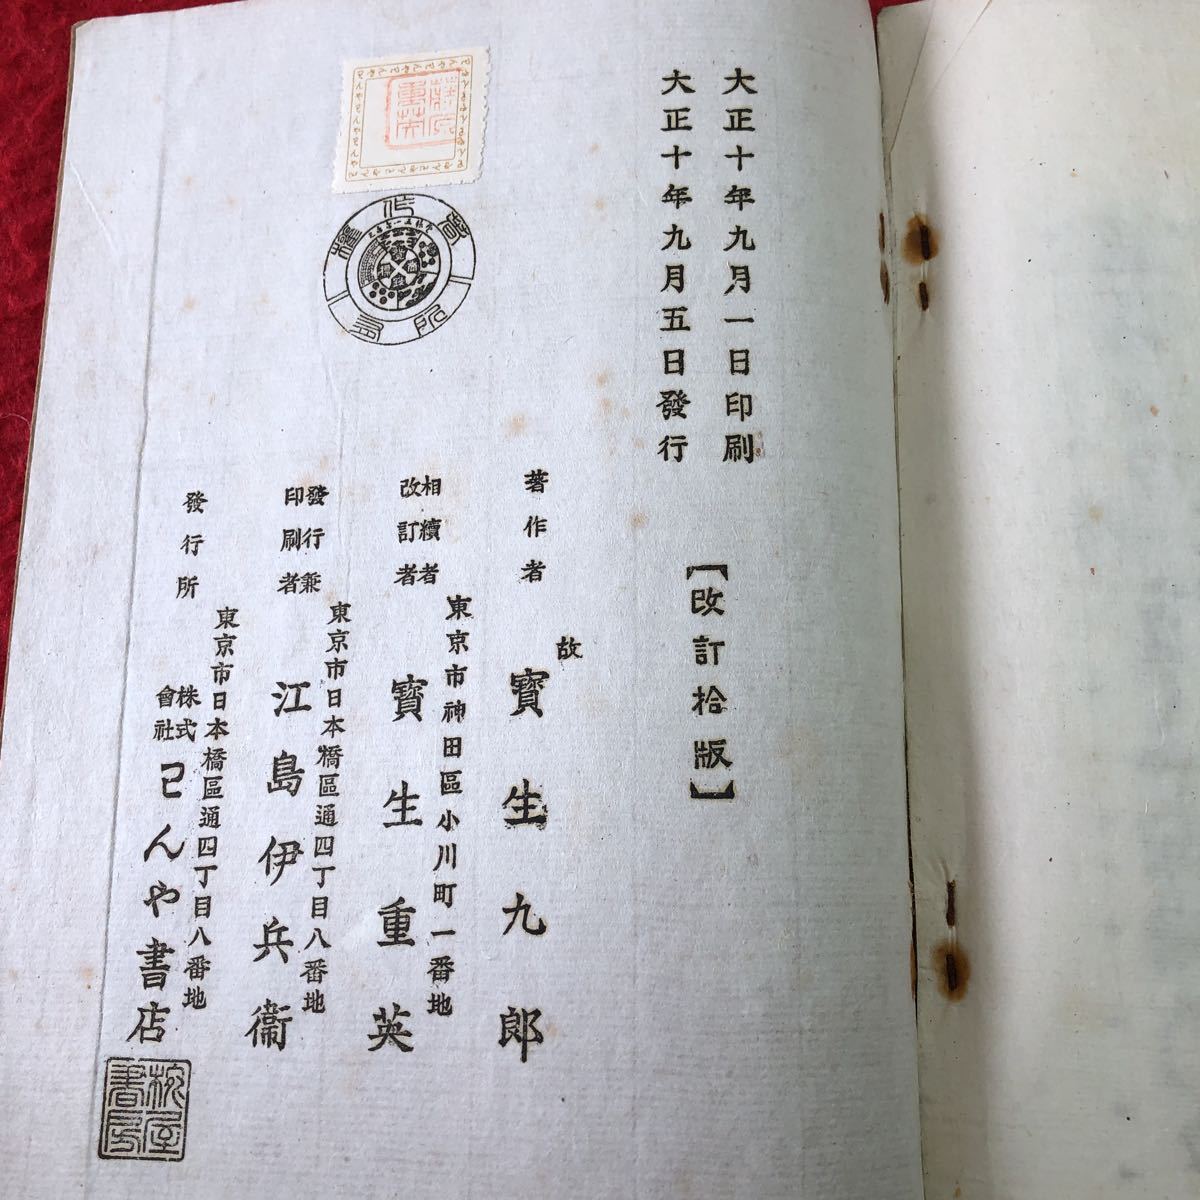 大正十年九月一日印刷
大正十年九月五日發行
【改訂拾版】
著作者
故
寶生九郎
相續者
改訂者
東京市神田區小川町一番地
寶生重英
發行兼
印刷者
東京市日本橋區通四丁目八番地
江島伊兵衞
發行所
東京市日本橋區通四丁目八番地
株式
會社
わんや書店
椀屋
書房